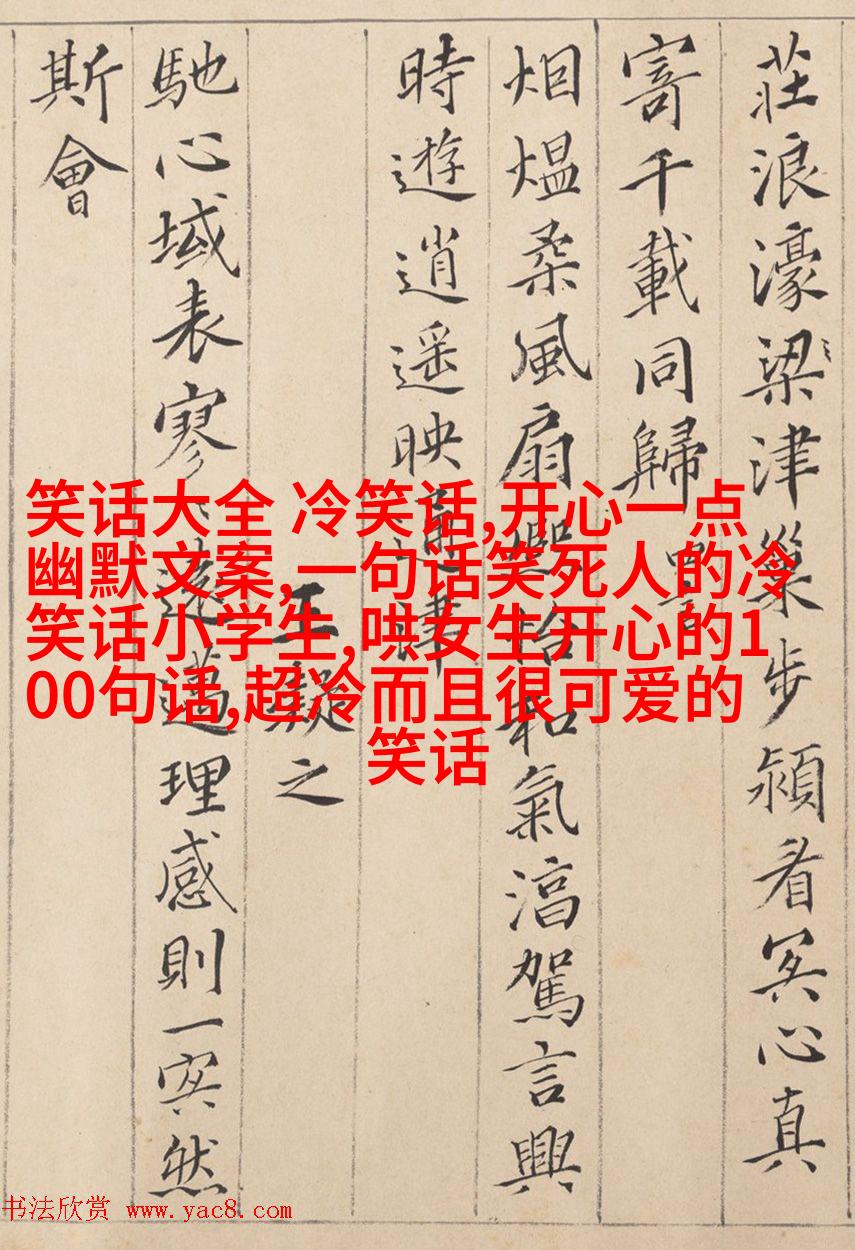 莊浪濠梁津巢步潁看冥心真
寄千載同歸
烟煴柔風扇熙怡和氣淳駕言興
時遊逍遥映通津
王凝之
馳心域表寥〻遠邁理感則一冥然
斯會
笑话大全 冷笑话,开心一点
幽默文案,一句话笑死人的冷
笑话小学生,哄女生开心的1
00句话,超冷而且很可爱的
笑话
书法欣赏 www.yac8.com